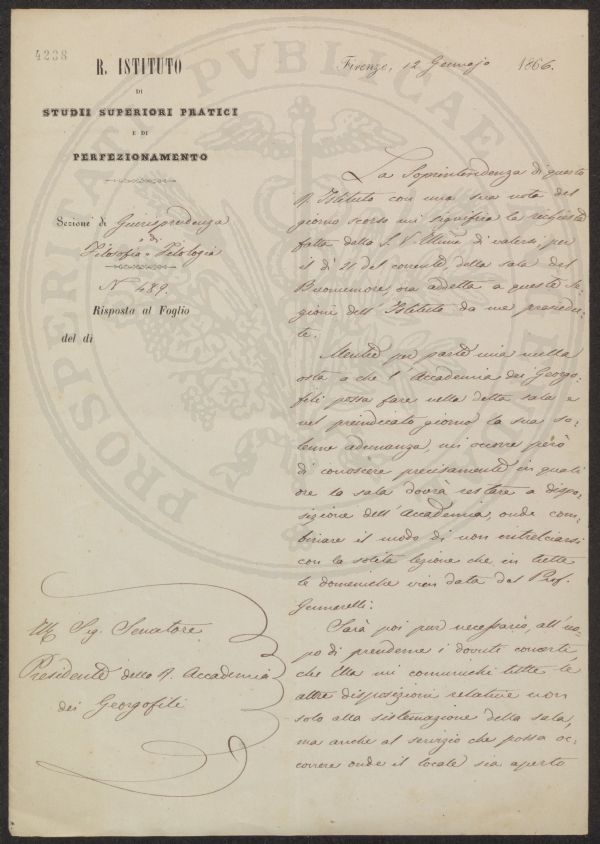 4238
R. ISTITUTO
DI
STUDII SUPERIORI PRATICI
E DI
PERFEZIONAMENTO
Sezione di Giurisprudenza
e di
Filosofia e Filologia
N° 489.
Risposta al Foglio
del dì
Firenze, 12 Gennajo 1866.
La Soprintendenza di questo
R. Istituto con una sua nota del
giorno scorso mi significa la richiesta
fatta dalla S. V. Illma di valersi, per
il dì 21 del corrente, della sala del
Buonumore, ora addetta a questa Se-
zione dell'Istituto da me presiedu-
ta.
Mentre per parte mia nulla
osta a che l'Accademia dei Georgo-
fili possa fare nella detta sala e
nel preindicato giorno la sua so-
lenne adunanza, mi occorre però
di conoscere precisamente in quali
ore la sala dovrà restare a dispo-
sizione dell'Accademia, onde com-
binare il modo di non intralciarsi
con la solita lezione che in tutte
le domeniche vien data dal Prof.
Gennarelli.
Sarà poi pur necessario, all'uo-
po di prendere i dovuti concerti
che Ella mi comunichi tutte le
altre disposizioni relative non
solo alla sistemazione della sala,
ma anche al servizio che possa oc-
correre onde il locale sia aperto
Al Sig. Senatore
Presidente della R. Accademia
dei Georgofili
PROSPERITATI PVBLICAE